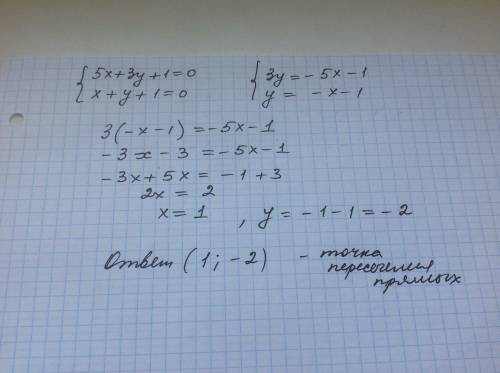 { 5x+3y+1=0   { 3y=-5x-1
{ x+y+1=0   { y = -x-1
3(-x-1) =-5x-1
-3x-3 =-5x-1
-3x+5x = -1+3
2x = 2
x=1 , y = -1-1 = -2
Ответ (1; -2) - точка
пересечения
прямых